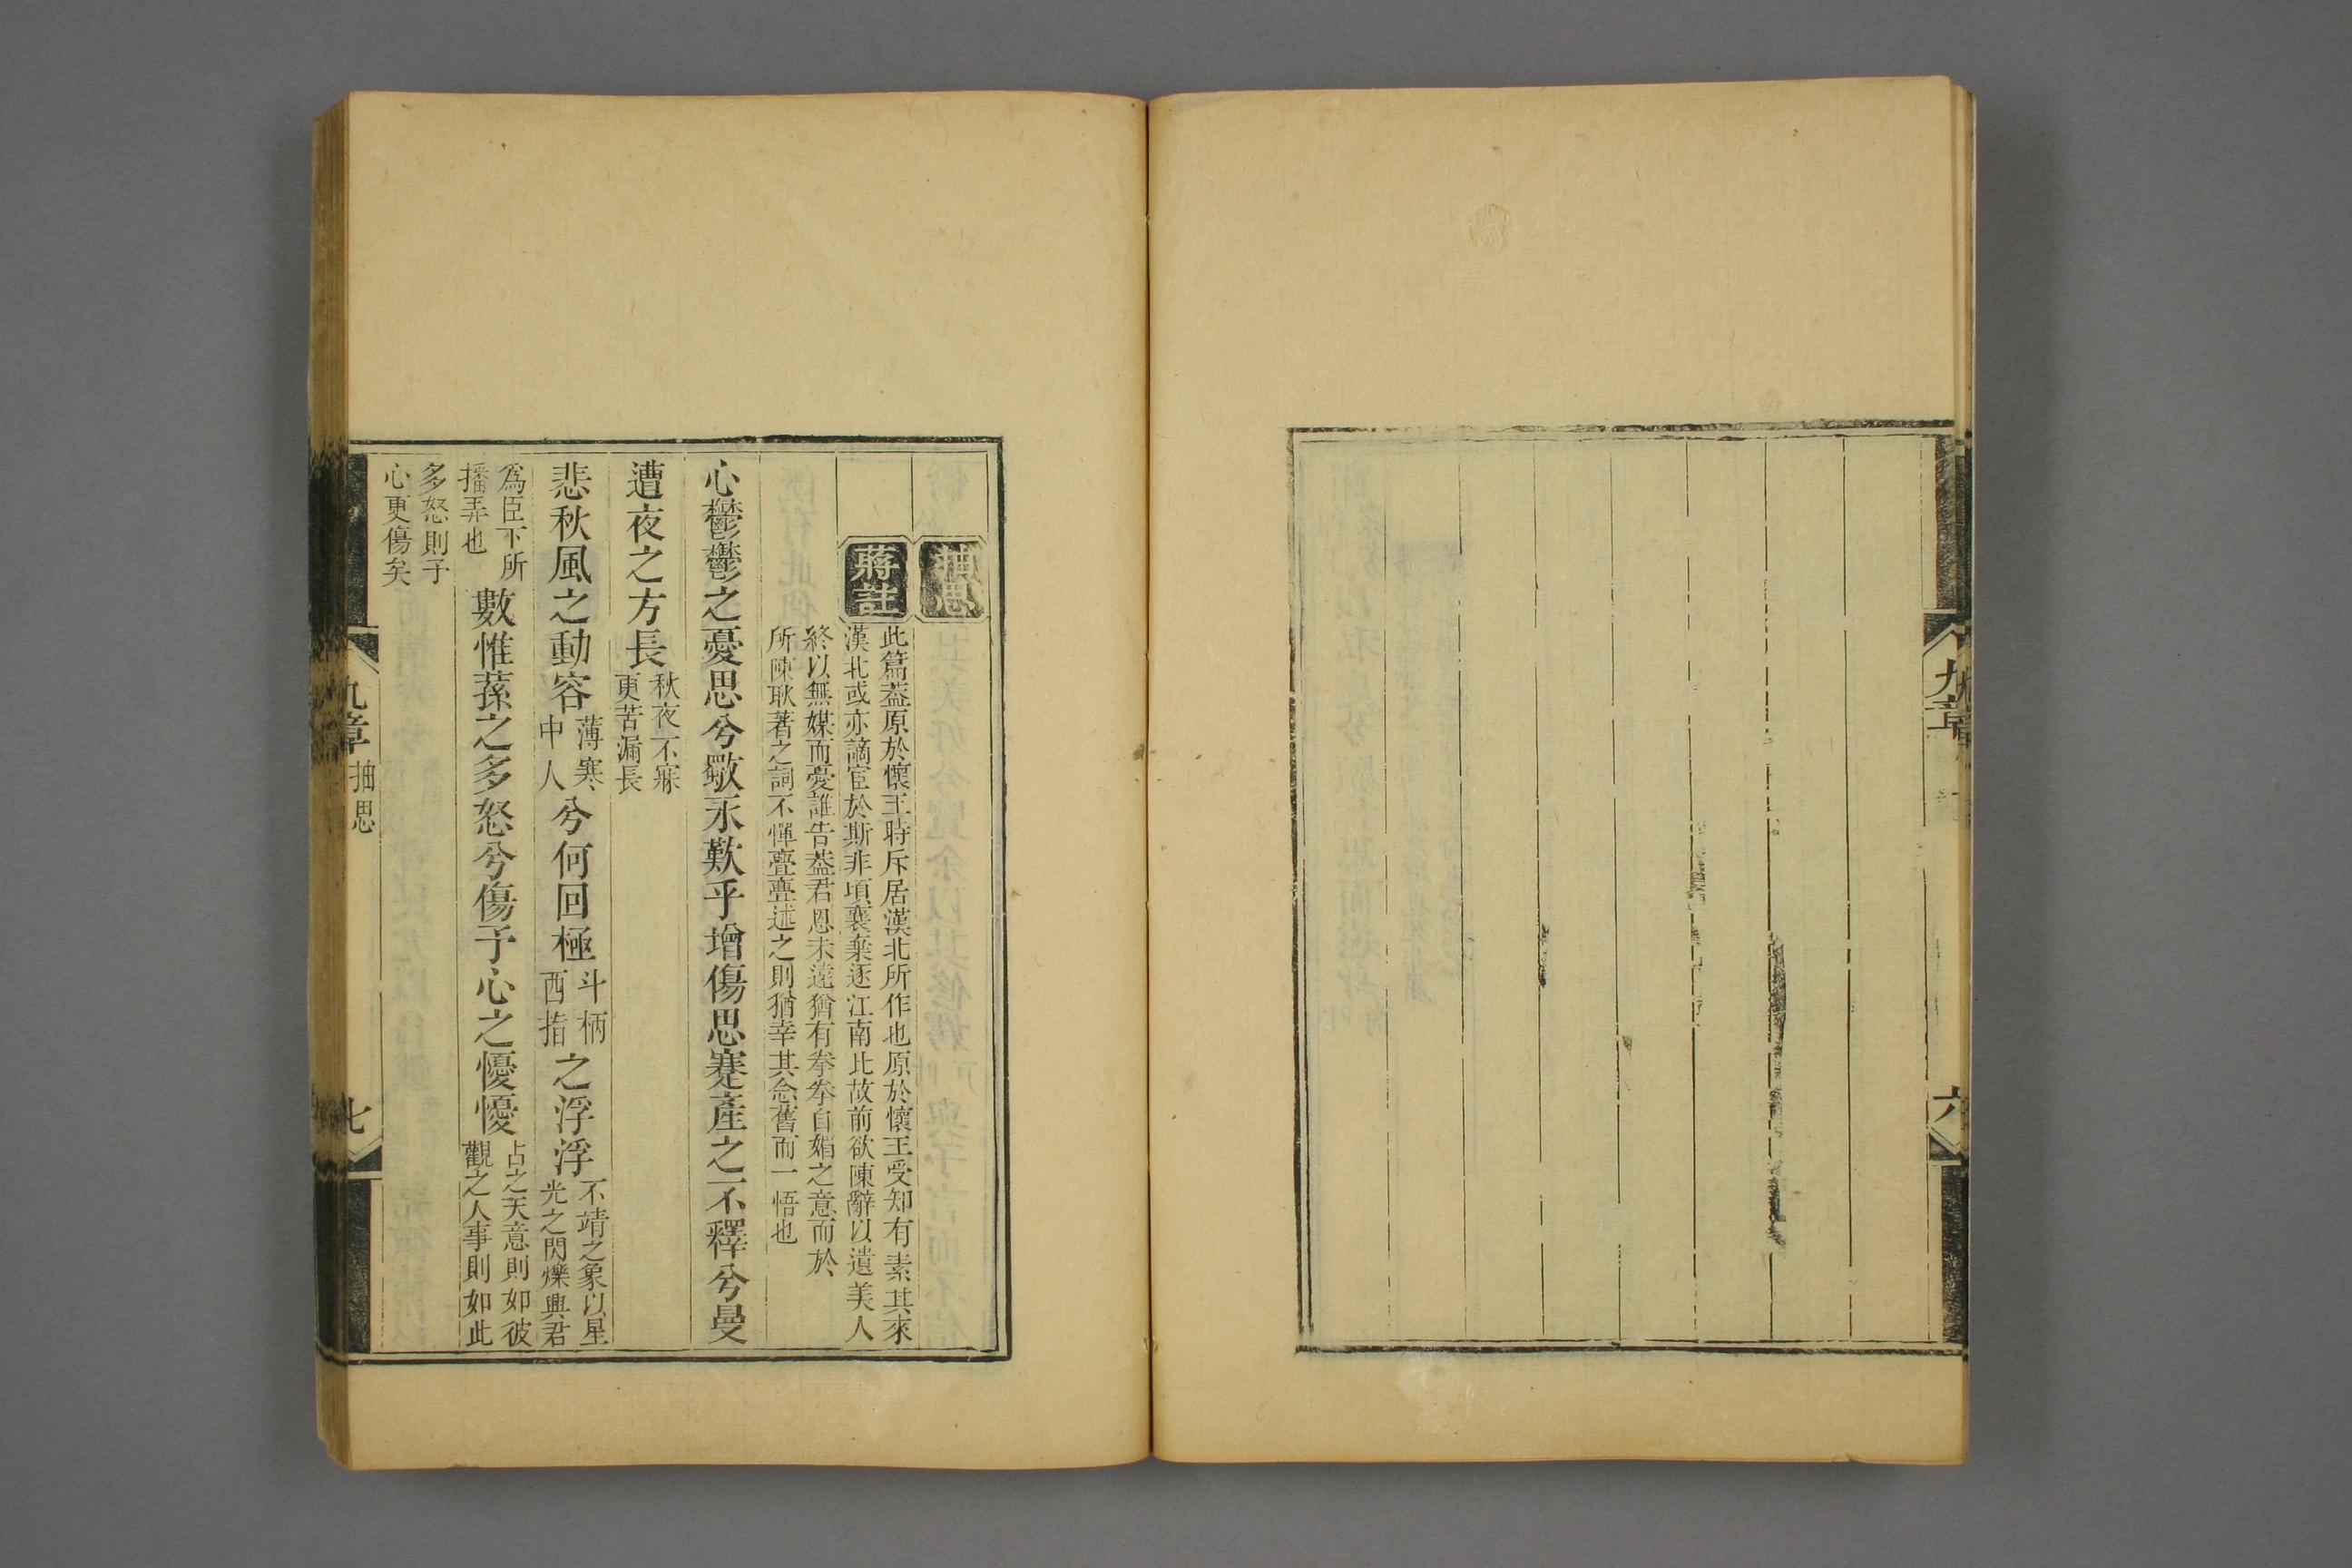 九章
六
抽思
蔣註
此篇葢原於懷王時斥居漢北所作也原於懷王受知有素其來
漢北或亦謫宦於斯非頃襄棄逐江南比故前欲陳辭以遺美人
終以無媒而憂誰告葢君恩未遠猶有拳拳自媚之意而於
所陳耿著之詞不憚亹亹述之則猶幸其念舊而一悟也
心鬱鬱之憂思兮獨永歎乎增傷思蹇產之不釋兮曼
遭夜之方長
秋夜不寐
更苦漏長
悲秋風之動容
薄寒
中人
兮何回極
斗柄
西指
之浮浮
不靖之象以星
光之閃爍興君
爲臣下所
播弄也
數惟蓀之多怒兮傷予心之懮懮
占之天意則如彼
觀之人事則如此
多怒則予
心更傷矣
九章
抽思
七